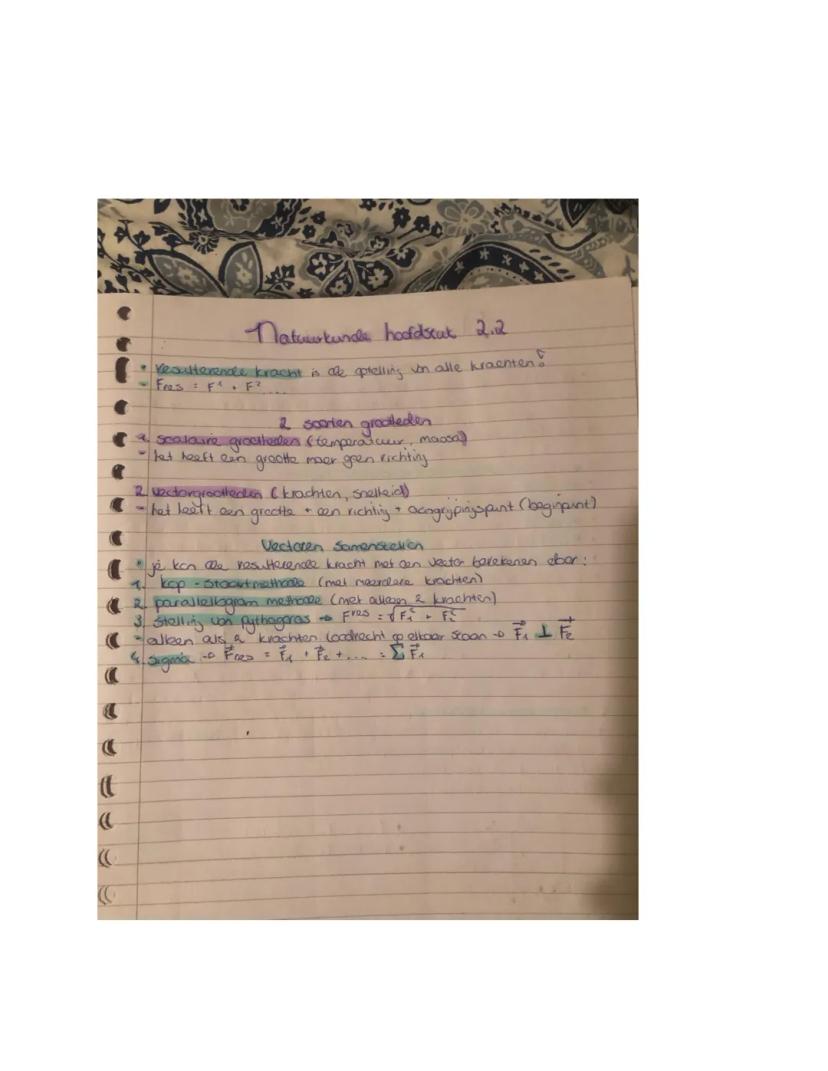 Natuurkunde hoofdstuk 2.2
• resulterende kracht is de optelling van alle krachten!
- Fres = F¹ + F² ....
2 soorten grootheden
1. scalaire grootheden (temperatuur, massa)
- het heeft een grootte maar geen richting
2. vectorgrootheden (krachten, snelheid)
- het heeft een grootte + een richting + aangrijpingspunt (beginpunt)
Vectoren samenstellen
• je kan de resulterende kracht met een vector berekenen door:
1. kop-staartmethode (met meerdere krachten)
2. parallellogram methode (met alleen 2 krachten)
3. stelling van pythagoras → Fres = √F₁² + F₂²
- alleen als 2 krachten loodrecht op elkaar staan → F⃗₁ ⊥ F⃗₂
4. sigma → F⃗res = F⃗₁ + F⃗₂ + .... = ∑ F⃗₁